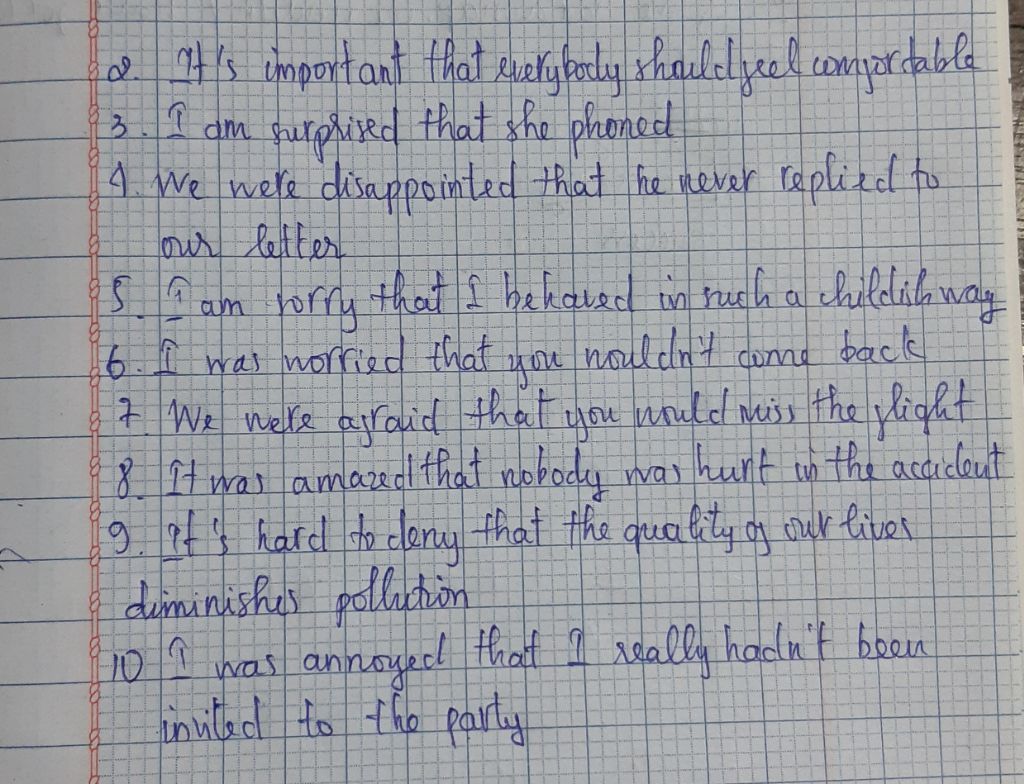 2. It's important that everybody should feel comfordable
3. I am surprised that she phoned
4. We were disappointed that he never replied to
our letter
5. I am sorry that I behaved in such a childish way
6. I was worried that you wouldn't come back
7. We were afraid that you would miss the flight
8. It was amazed that nobody was hurt in the accident
9. It's hard to deny that the quality of our lives
diminishes pollution
10 I was annoyed that I really hadn't been
invited to the party